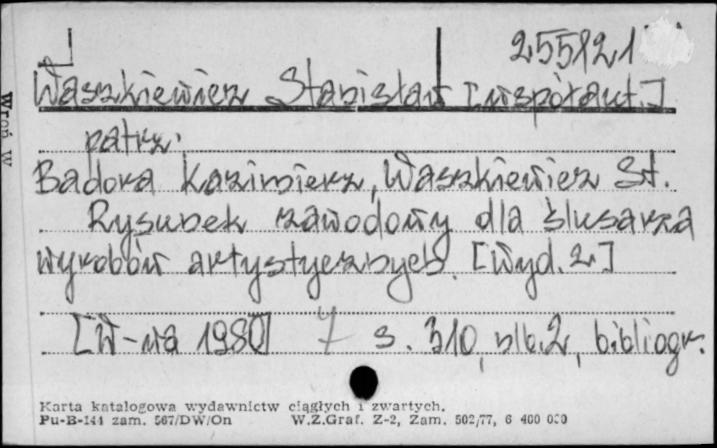 255121
Waszkiewicz Stanisław [współaut.]
patrz.
Badora Kazimierz, Waszkiewicz St.
Rysunek zawodowy dla ślusarza
wyrobów artystycznych. [Wyd. 2]
[W-wa 1980] s. 310, nlb. 2, bibliogr.
Karta katalogowa wydawnictw ciągłych i zwartych.
Pu-B-141 zam. 567/DW/On W.Z.Graf. Z-2, Zam. 502/77, 6 400 000